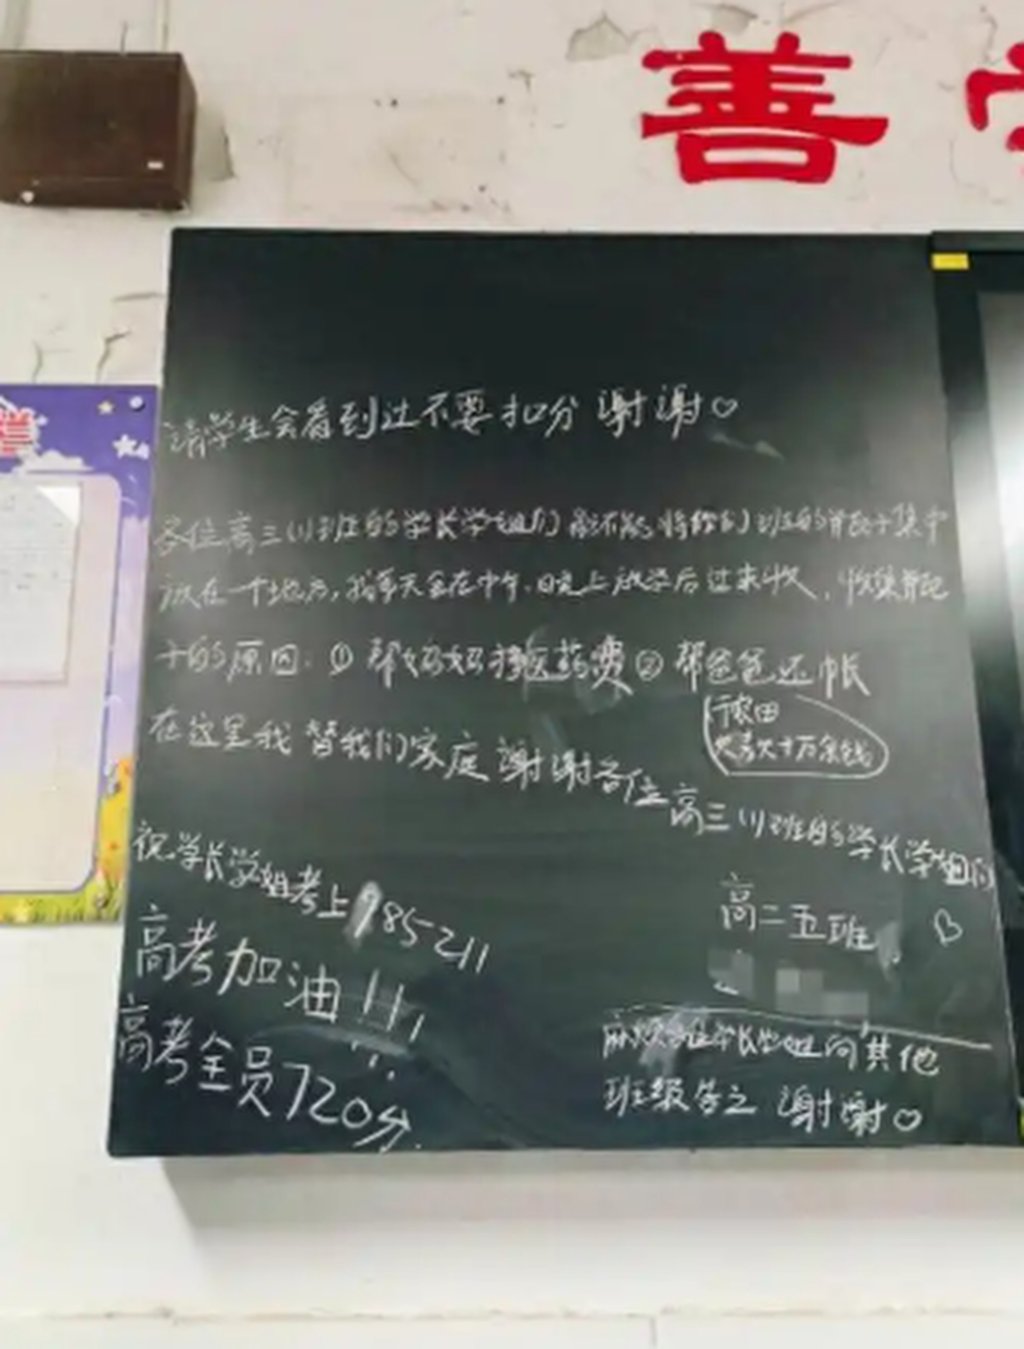 善
请学生会看到过不要扣分 谢谢♡
各位高三(1)班的学长学姐们 能不能将你们班的瓶子集中
放在一个地方,我每天会在中午、晚上放学后过来收,收集瓶
子的原因:① 帮妈妈挣医药费② 帮爸爸还帐
欠款十万余钱
在这里我 替我们家庭 谢谢各位高三(1)班的学长学姐们
祝学长学姐考上985211
高考加油!!!
高考全员720分
高二五班 ♡
麻烦各位学长学姐向其他
班级告之 谢谢♡